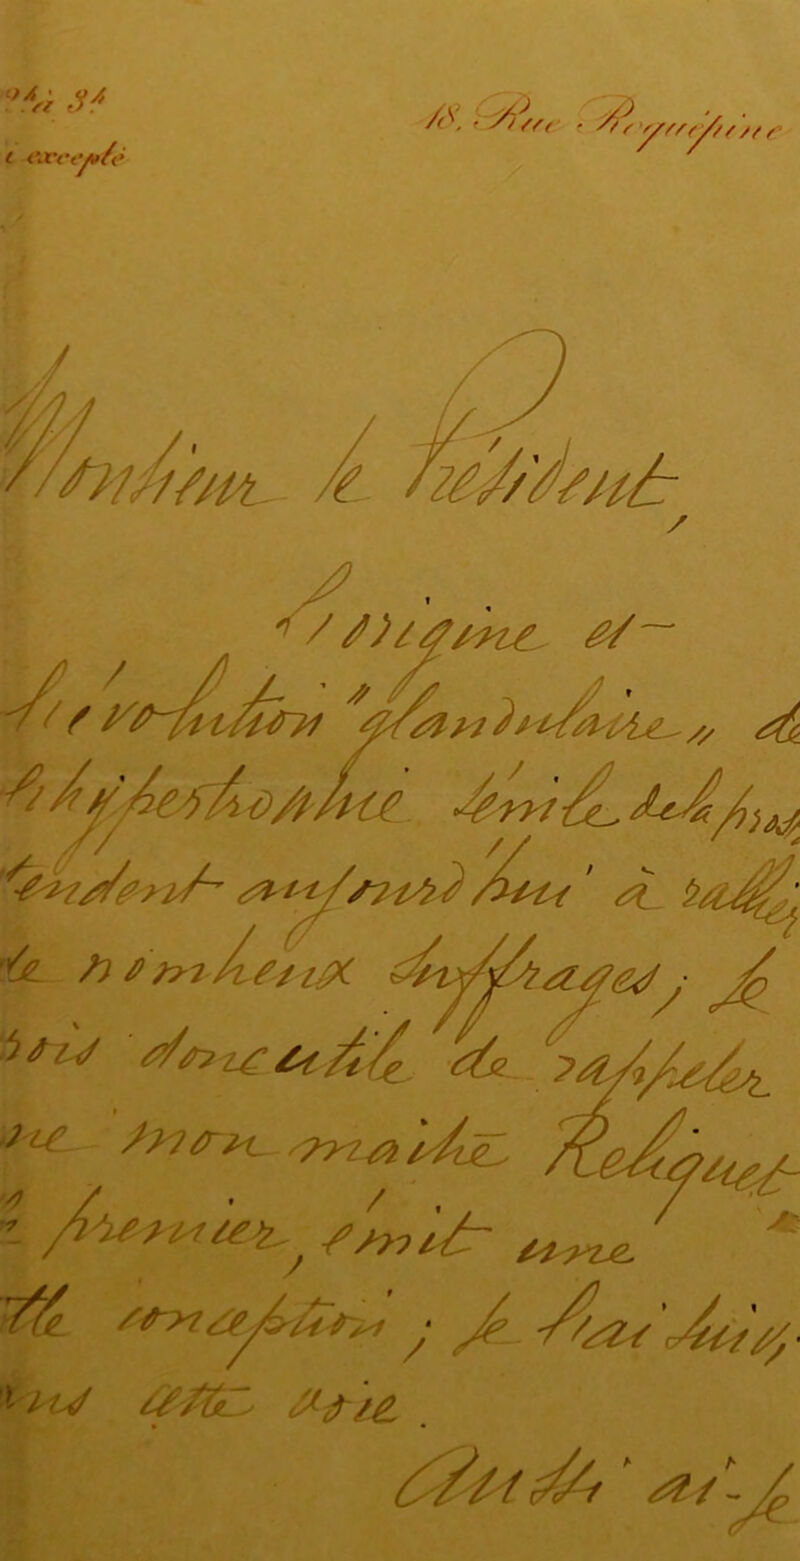 à 3h
excepté
18, Rue Roquépine
Monsieur le Président,
L'origine et
l'évolution "glandulaire" de
l'hypertrophie sénile de la pros
tendent aujourd'hui à rallier
de nombreux suffrages; je
crois donc utile de rappeler
que mon maître Reliquet
le premier, émit une
telle conception; je l'ai suivi
dans cette voie.
Aussi ai-je